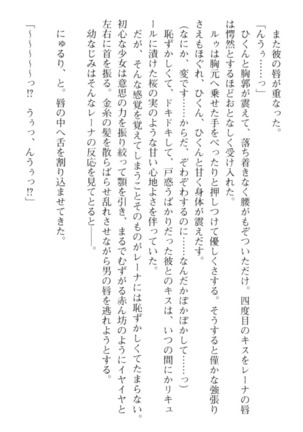 また彼の唇が重なった。
「んうぅ……っ」
ひくんと胸郭が震えて、落ち着きなく腰がもぞついただけ。四度目のキスをレーナの唇
は愕然とするほどおとなしく受け入れた。
ルゥは胸元へ乗せた手をぺったりと押しつけて優しくさする。そうすると僅かな強張り
さえもほぐれ、ひくん、ひくんと甘く身体が震えだす。
（なにか、変です……からだ、ぞわぞわするのに……なんだかぽかぽかして……っ）
恥ずかしくて、ドキドキして、戸惑うばかりだった彼とのキスは、いつの間にかリキュ
ールに漬けた桜の実のような甘い心地よさを伴っていた。
だが、そんな感覚を覚えてしまうことそのものがレーナには恥ずかしくてたまらない。
初心な少女は意思の力を振り絞って顎を引き、まるでむずがる赤ん坊のようにイヤイヤと
左右に首を振る。金糸の髪を散らばらせ乱れさせながら男の唇を逃れようとする。
幼なじみはそんなレーナの反応を見てとると――。
にゅるり、と。唇の中へ舌を割り込ませてきた。
「～～～～～っ!?　うぅっ、んうぅっ!?